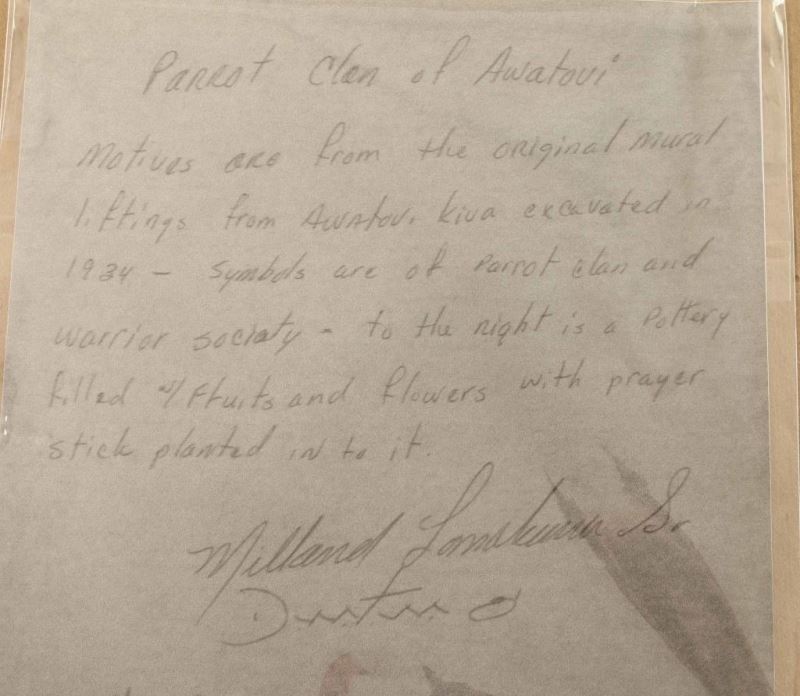 Parrot Clan of Awatovi
Motives are from the original mural
liftings from Awatovi kiva excavated in
1934 - Symbols are of Parrot clan and
warrior society - to the right is a Pottery
filled w/ Fruits and flowers with prayer
stick planted in to it.
Milland Lomakema Sr.